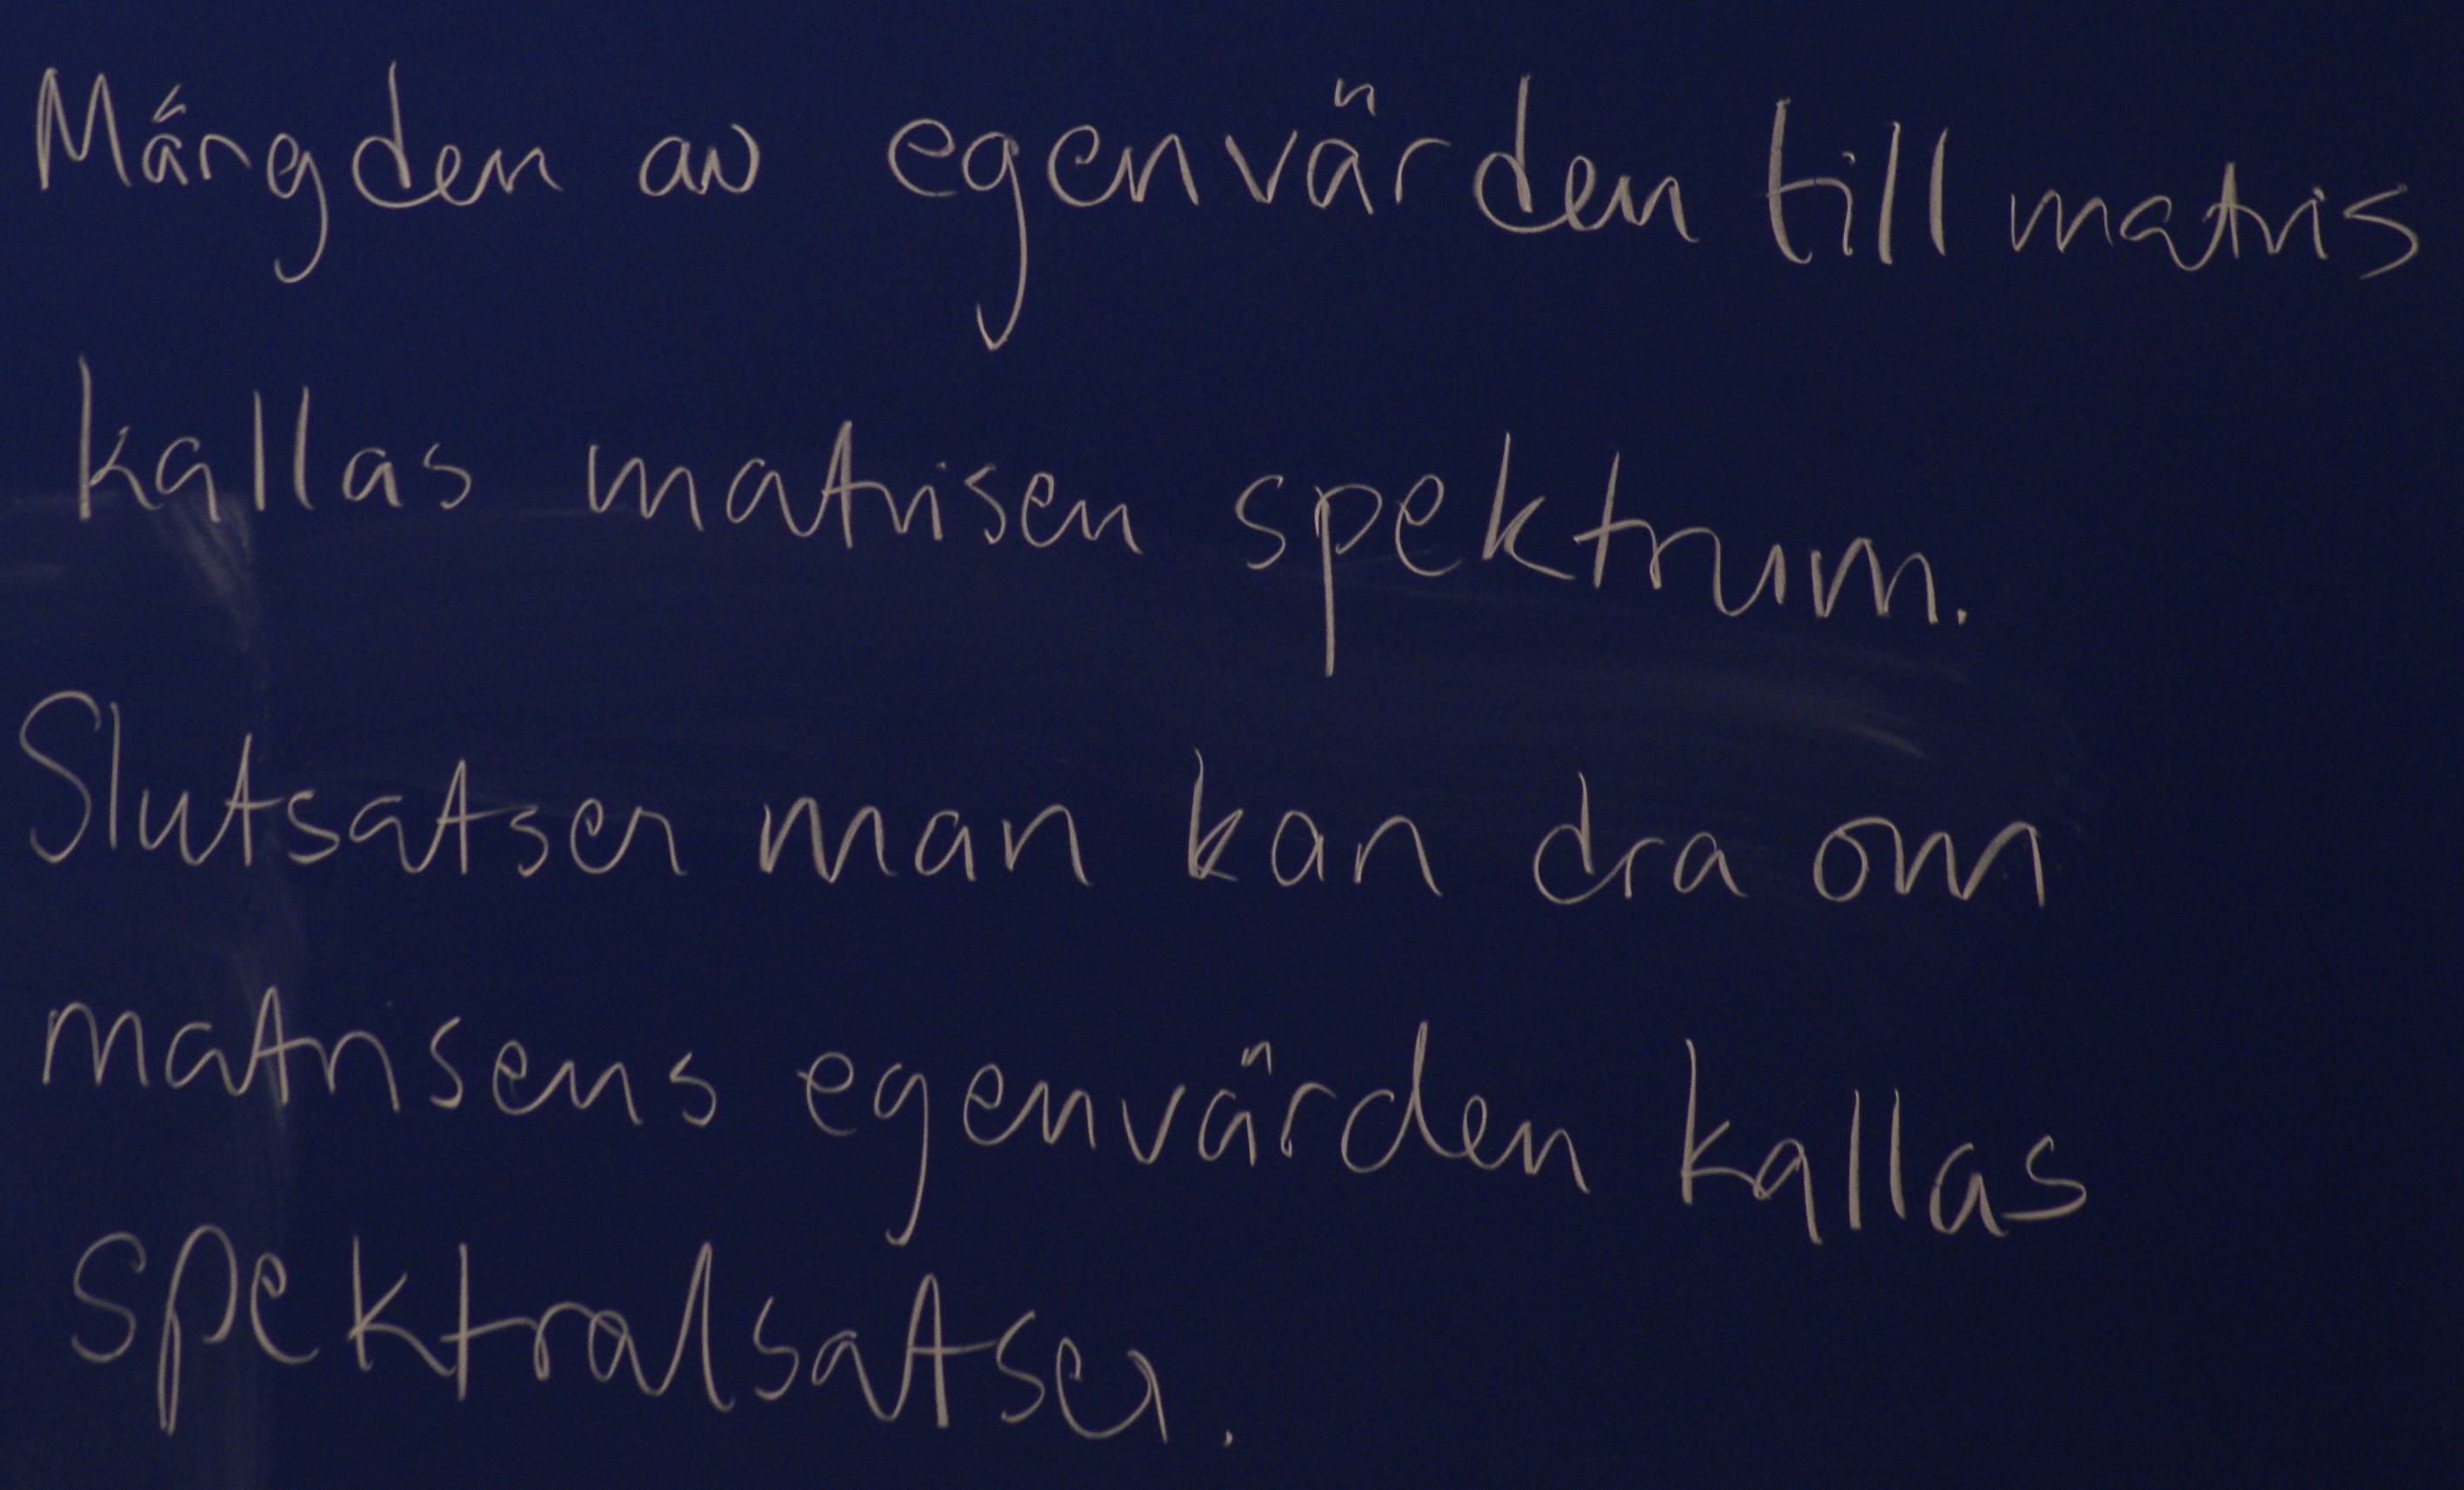 Mängden av egenvärden till matris
kallas matrisen spektrum.
Slutsatser man kan dra om
matrisens egenvärden kallas
spektralsatser.